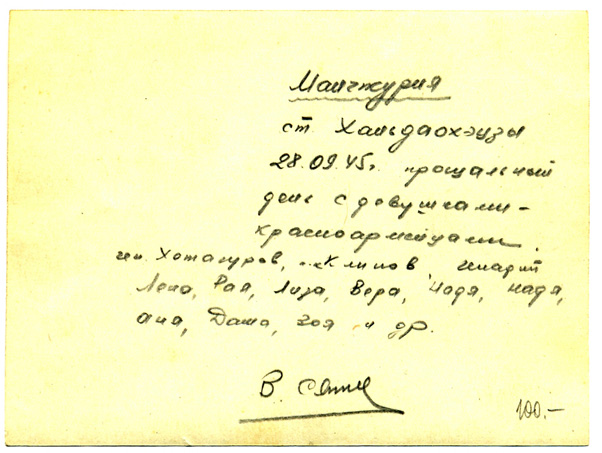 Манчжурия
ст. Ханьдаохэцзы
28.09.45г. прощальный
день с девушками-
красноармейцами.
ген. Хетагуров, Климов,
Лена, Рая, Лиза, Вера, Надя, Надя,
Аня, Даша, Зоя и др.
В.
100.-